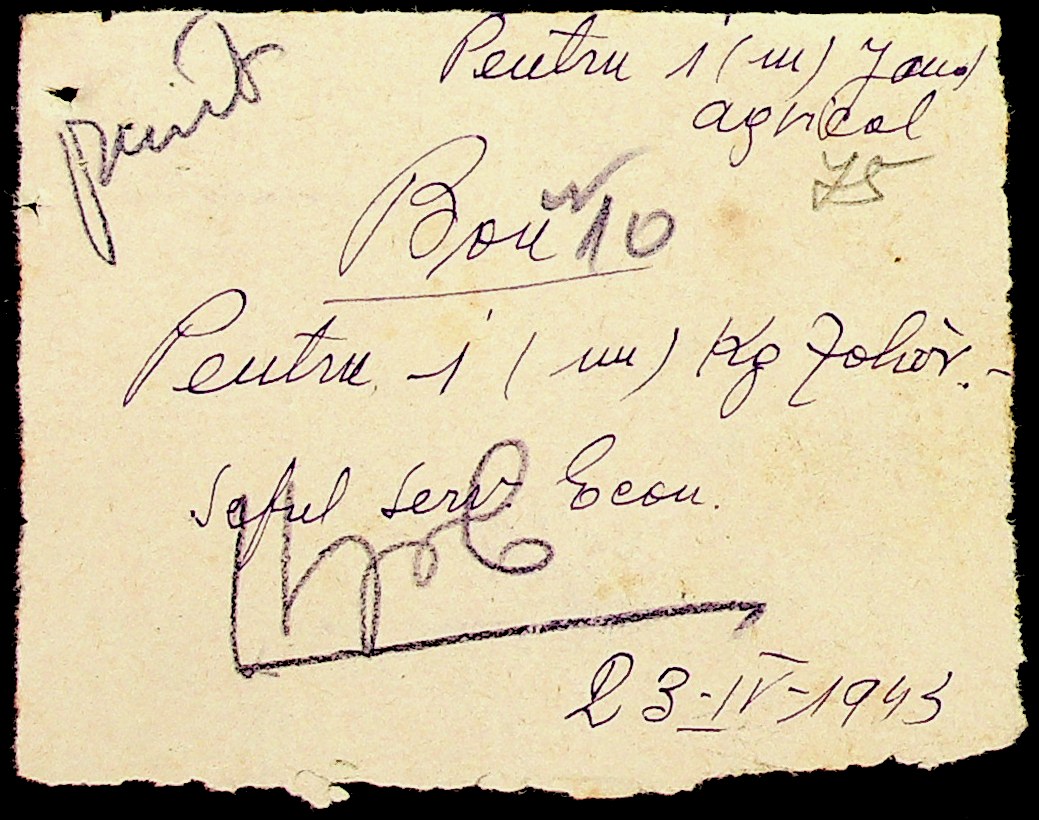 Pentru 1 (un) Jand
agricol
75
primit
Bon N 10
Pentru 1 (un) Kg Zahăr.-
Șeful Serv. Econ.
23-IV-1943